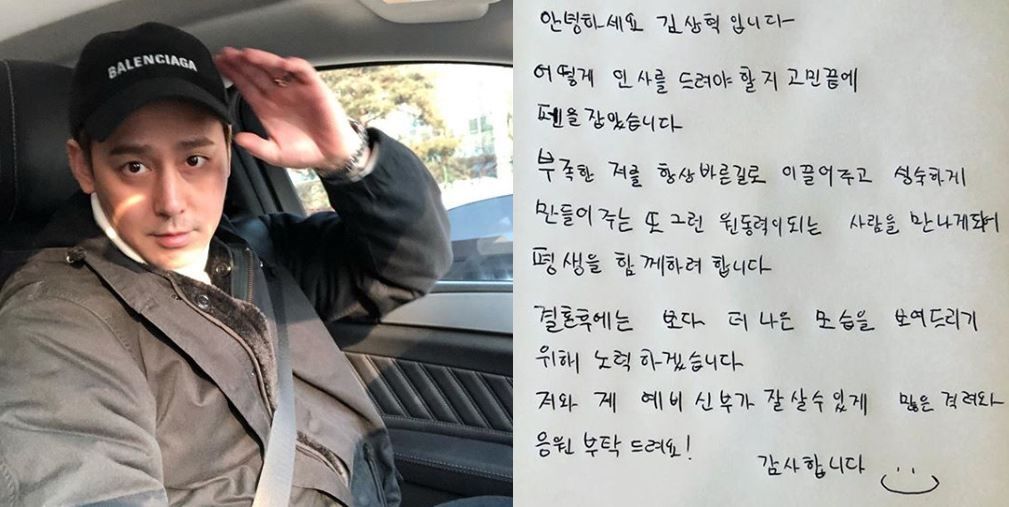 BALENCIAGA
안녕하세요 김상혁입니다
어떻게 인사를 드려야 할지 고민끝에
펜을 잡았습니다
부족한 저를 항상 바른길로 이끌어주고 성숙하게
만들어 주는 또 그런 원동력이 되는 사람을 만나게되어
평생을 함께하려 합니다
결혼후에는 보다 더 나은 모습을 보여드리기
위해 노력하겠습니다
저와 제 예비 신부가 잘 살수 있게 많은 격려와
응원 부탁 드려요!
감사합니다